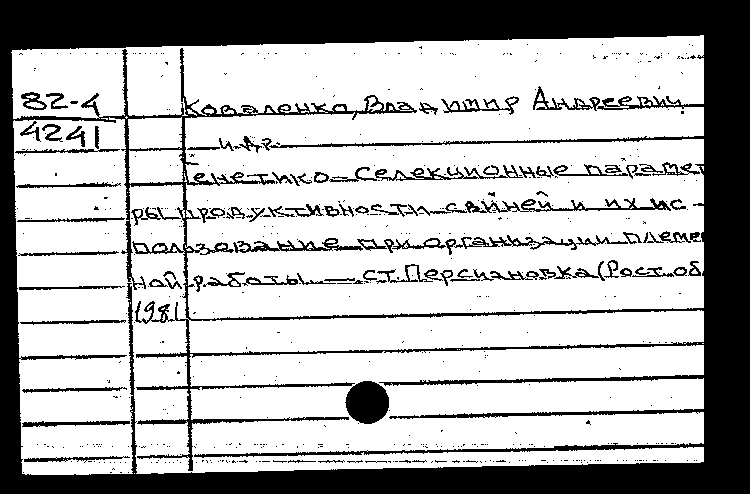 82-4
4241
Коваленко, Владимир Андреевич
и др.
Генетико-селекционные парамет
ры продуктивности свиней и их ис-
пользование при организации племен
ной работы. — ст. Персиановка (Рост. об.
1981